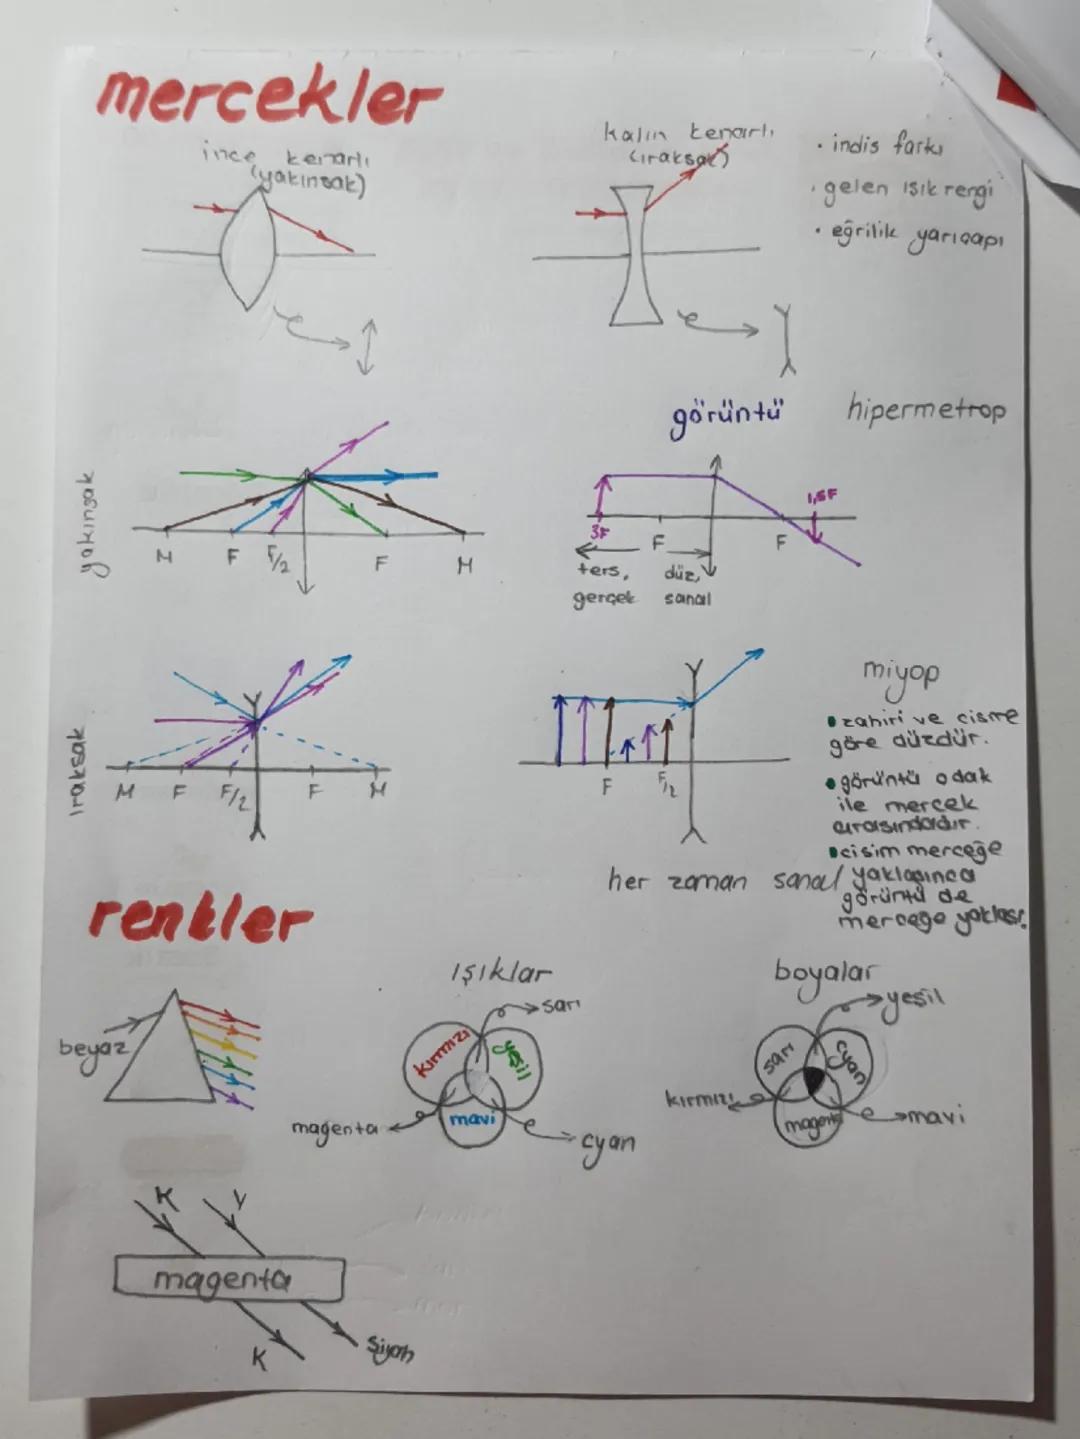 mercekler
ince kenarlı
(yakınsak)
kalın kenarlı
(ıraksak)
• indis farkı
• gelen ışık rengi
• eğrilik yarıçapı
görüntü
hipermetrop
yakınsak
M F F/2 F M
3F F F 1,5F
ters, düz,
gerçek sanal
ıraksak
M F F/2 F M
F F/2
miyop
• zahiri ve cisme
göre düzdür.
• görüntü odak
ile mercek
arasındadır.
• cisim merceğe
yaklaşınca
görüntü de
merceğe yaklaşır.
her zaman sanal
renkler
beyaz
ışıklar
sarı
kırmızı
yeşil
mavi
magenta
cyan
boyalar
yeşil
sarı
cyan
magenta
kırmızı
mavi
K Y
magenta
K siyah